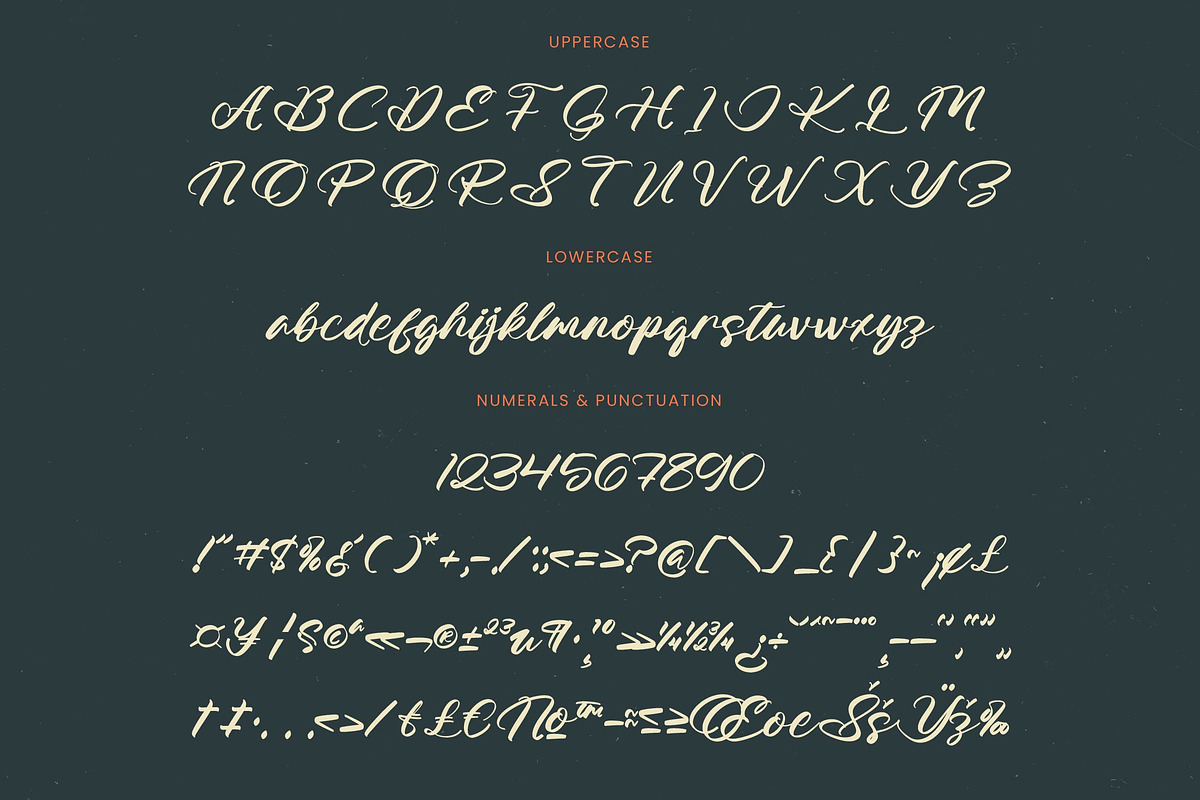 UPPERCASE
A B C D E F G H I J K L M
N O P Q R S T U V W X Y Z
LOWERCASE
abcdefghijklmnopqrstuvwxyz
NUMERALS & PUNCTUATION
1234567890
!"#$%&'()*+,-./:;<=>?@[\]_{|}~¡¢£
¤¥¦§©ª«¬®±²³µ¶·¸¹º»¼½¾¿÷
†‡•...‹›⁄₤€№™−≈≤≥ŒœŠšŸž‰